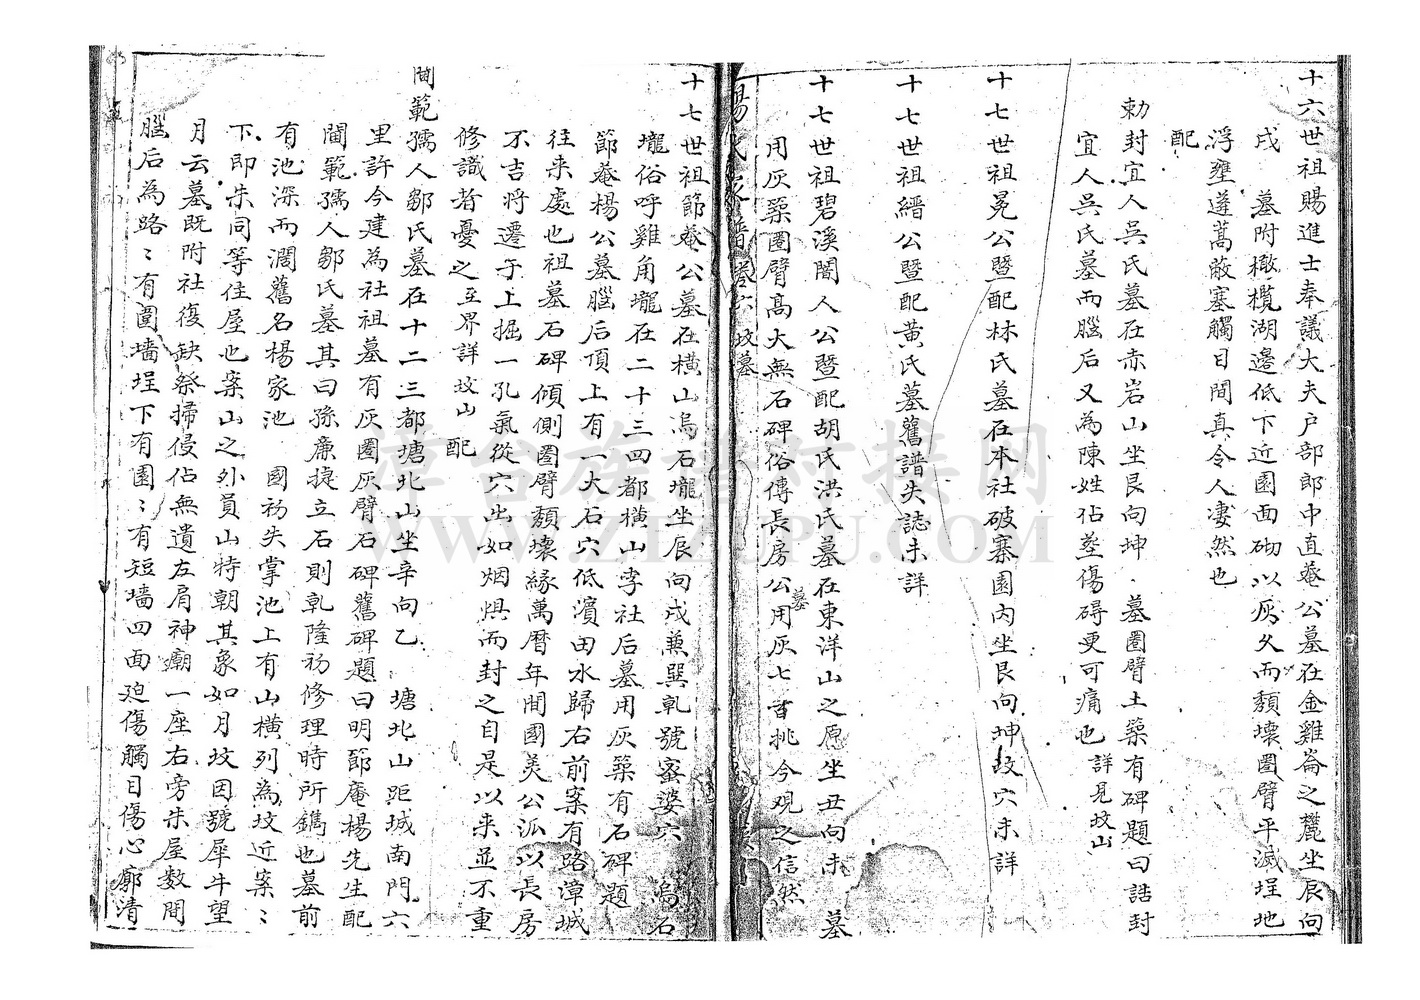 十六世祖賜進士奉議大夫户部郎中直菴公墓在金雞崙之麓坐辰向
戌　墓附橄欖湖邊低下近園面砌以灰久而頹壞圈臂平滅埕地
浮壅蓬蒿蔽塞觸目間真令人凄然也
配
勅封宜人吳氏墓在赤岩山坐艮向坤墓圈臂土築有碑題曰誥封
宜人吳氏墓而腦后又為陳姓佔塟傷碍更可痛也 詳見坟山
十七世祖冕公暨配林氏墓在本社破寨園内坐艮向坤坟穴未詳
十七世祖縉公暨配黄氏墓舊譜失誌未詳
十七世祖碧溪闇人公暨配胡氏洪氏墓在東洋山之原坐丑向未　墓
用灰築圈臂高大無石碑俗傳長房公墓用灰七百挑今观之信然
楊氏家譜卷六 坟墓
十七世祖節菴公墓在橫山烏石壠坐辰向戌兼巽乾號蜜婆穴　烏石
壠俗呼雞角壠在二十三四都橫山李社后墓用灰築有石碑題
節菴楊公墓腦后頂上有一大石穴低濱田水歸右前案有路漳城
往来處也祖墓石碑傾側圈臂頹壞緣萬曆年間國美公派以長房
不吉將遷于上掘一孔氣從穴出如烟惧而封之自是以来並不重
修識者憂之 至界詳坟山　配
閫範孺人鄒氏墓在十二三都塘北山坐辛向乙　塘北山距城南門六
里許今建為社祖墓有灰圈灰臂石碑舊碑題曰明節庵楊先生配
閫範孺人鄒氏墓其曰孫廉捷立石則乾隆初修理時所鐫也墓前
有池深而濶舊名楊家池　國初失掌池上有山橫列為坟近案〻
下即朱同等佳屋也案山之外員山特朝其象如月坟因號犀牛望
月云墓既附社復缺祭掃侵佔無遺左肩神廟一座右旁朱屋数間
腦后為路〻有圍墻埕下有園〻有短墻四面廹傷觸目傷心廓清